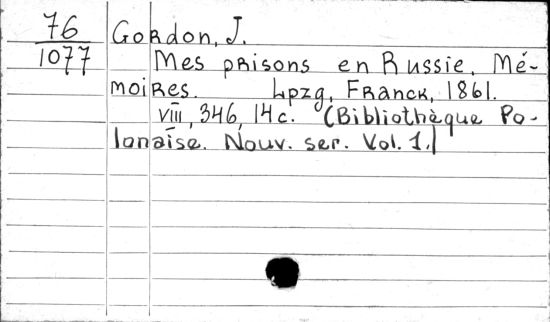 76
1077
Gordon, J.
Mes prisons en Russie. Mé-
moires. Lpzg, Franck, 1861.
VIII, 346, 14 c. (Bibliothèque Po-
lonaise. Nouv. ser. Vol. 1.)